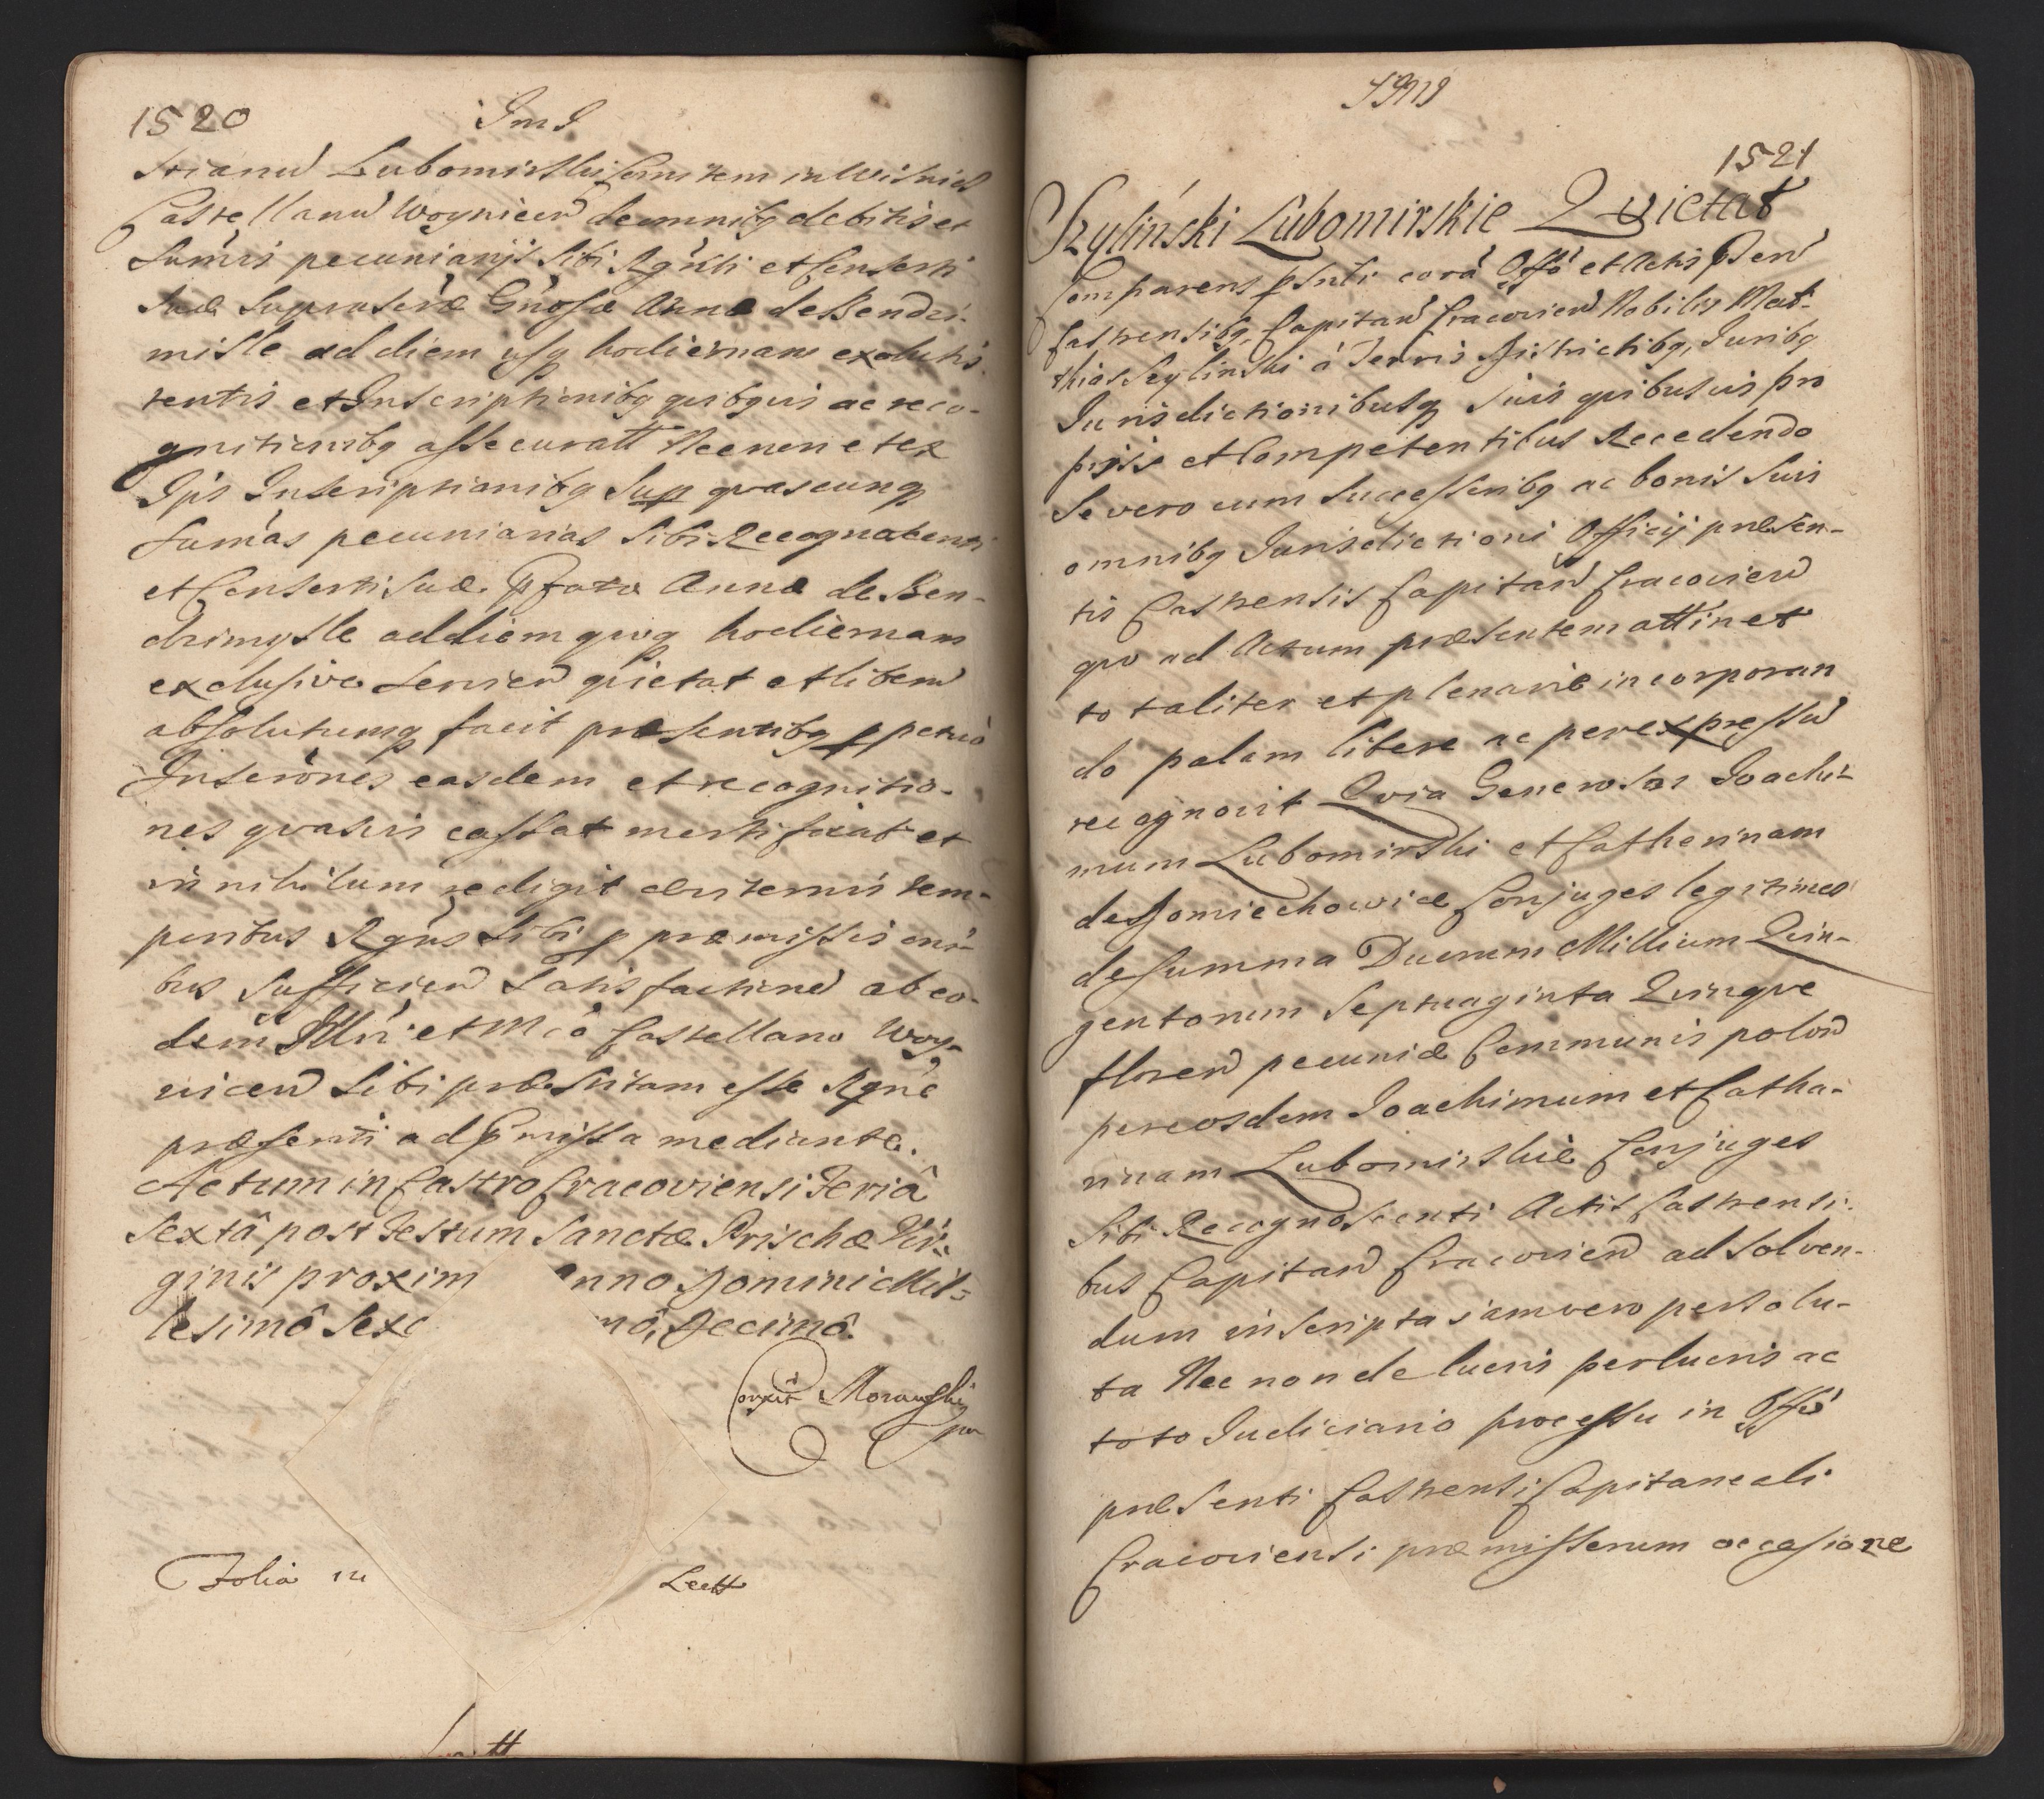 1520
ImJ
stianum Lubomirski Comitem in Wisnicz
Castellanum Woyniceñ de omnibq debitis et
sumis pecuniarijs sibi Rgnti et Consorti
suæ suprascræ Gnosæ Annæ de Bendzi-
misle ad diem usq hodiernam exclusis
tentis et Inscriptionibq quibquis ac reco-
gnitionibq assecuratt Necnon et ex
Ipis Inscriptionibq sup quascunq
sumas pecuniarias sibi Recognoscenti
et Consorti suæ Pfatæ Annæ de Ben-
dzimysle ad diem quoq hodiernam
exclusive servien quietat et liberũ
absolutumq facit præsentibq ppetuo
Inscrônes easdem et recognitio-
nes quasvis cassat mortificat et
in nihilum redigit æviternis tem-
poribus Rgñs sibi p præmissis oni-
bus sufficien satisfactione ab eo-
dem Illri et Mco Castellano Woy-
niceñ sibi præstitam esse Rgne
præsenti ad Pmissa mediante.
Actum in Castro Cracoviensi Feriâ
sextâ post Festum Sanctæ Prischæ Vir-
ginis proxim nno Domini Mil-
lesimô Sexc mô, Decimô.
Corrxit Morawski
mp
Folia in Lectt
1521
Szyliński Lubomirskie Quietat
Comparens psnti corã Offõ et Actis Pseñ
Castrensibq, Capitañ Cracovień Nobilis Mat-
thias Szylinski à Terris Districtibq, Juribq
Jurisdictionibusq suis quibusvis pro
prijs et Competentibus Recedendo
se vero cum successoribq ac bonis suis
omnibq Jurisdictioni Officij præsen-
tis Castrensis Capitañ Cracovieñ
quo ad Actum præsentem attinet
totaliter et plenarie incorporan
do palam libere ac per expressũ
recognovit Quia Generosos Joachi-
mum Lubomirski et Catherinam
de Domiechowice Conjuges legitimos
de summa Duorum Millium Quin-
gentorum Septuaginta Quinque
floreñ pecuniæ Communis poloñ
per eosdem Joachimum et Catha-
rinam Lubomirskie Conjuges
sibi Recognoscenti Actis Castrensi-
bus Capitañ Cracovieñ ad solven-
dum inscripta iam vero persolu-
ta Nec non de lucris perlucris ac
toto Judiciario processu in Offõ
præsenti Castrensi Capitaneali
Cracoviensi præmissorum occasione